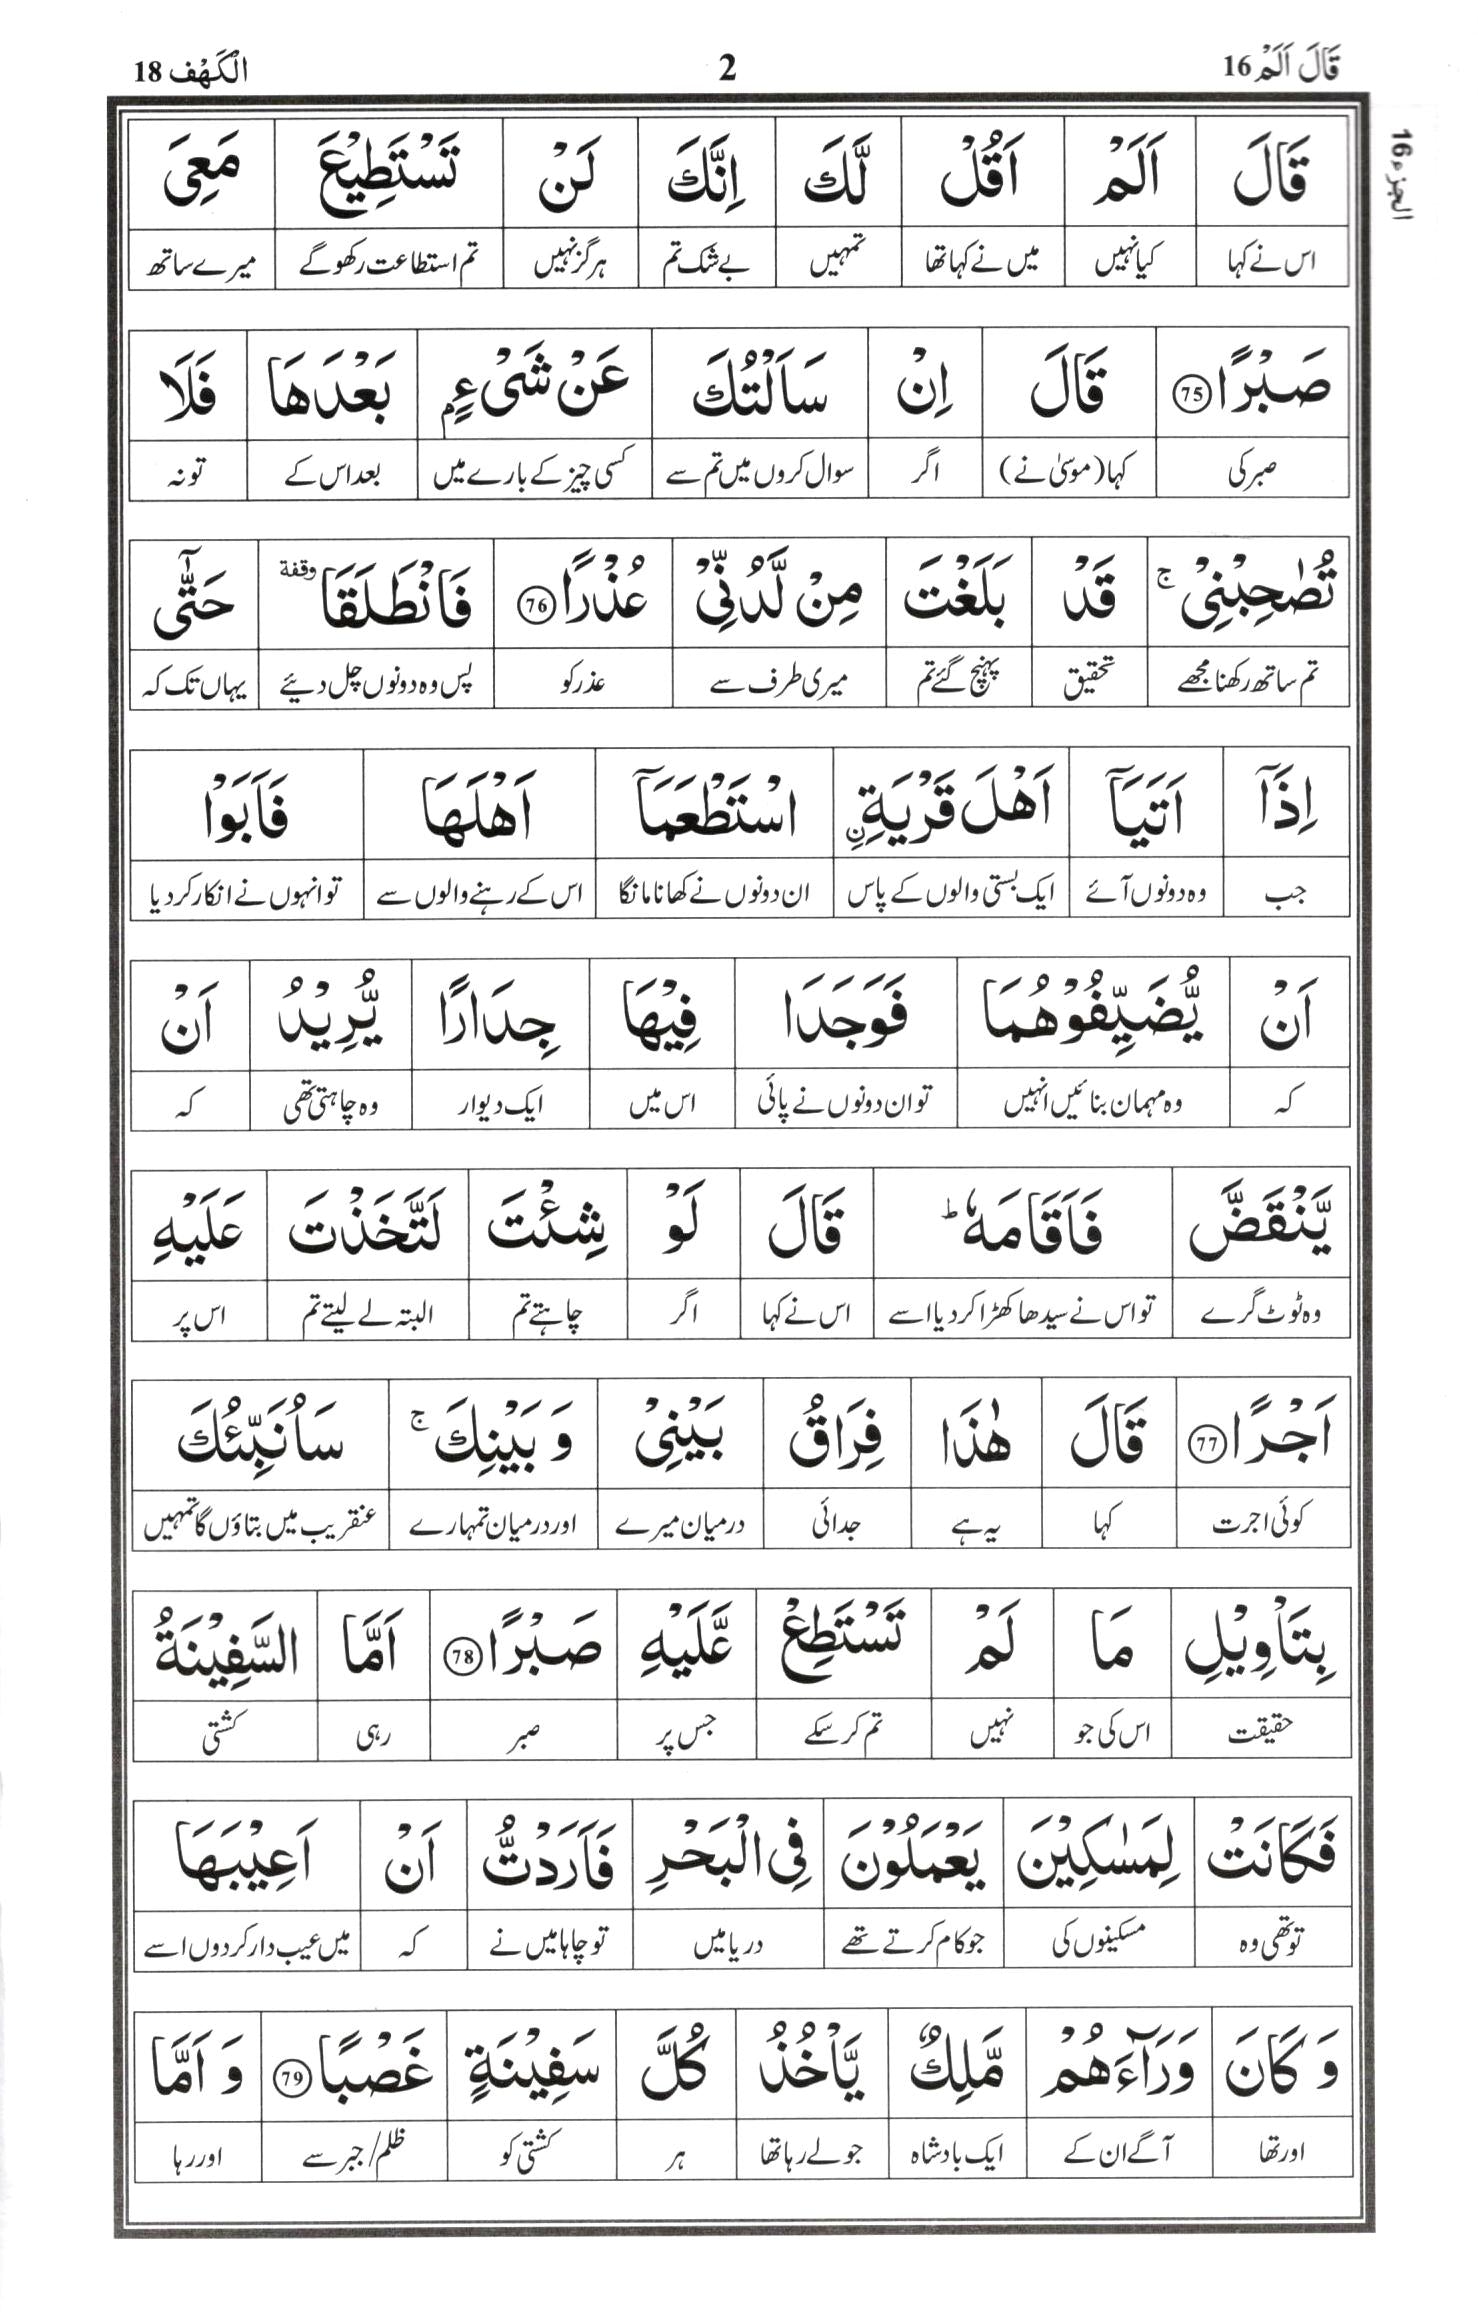 قَالَ اَلَمْ 16 2 الْكَهْف 18
الجزء 16
قَالَ اَلَمْ اَقُلْ لَّكَ اِنَّكَ لَنْ تَسْتَطِيْعَ مَعِىَ
اس نے کہا کیا نہیں میں نے کہا تھا تمہیں بے شک تم ہرگز نہیں تم استطاعت رکھو گے میرے ساتھ
صَبْرًا ۷۵ قَالَ اِنْ سَاَلْتُكَ عَنْ شَىْءٍۭ بَعْدَهَا فَلَا
صبر کی کہا (موسیٰ نے) اگر سوال کروں میں تم سے کسی چیز کے بارے میں بعد اس کے تو نہ
تُصٰحِبْنِىْ ۚ قَدْ بَلَغْتَ مِنْ لَّدُنِّىْ عُذْرًا ۷۶ فَانْطَلَقَا وقفة حَتّٰٓى
تم ساتھ رکھنا مجھے تحقیق پہنچ گئے تم میری طرف سے عذر کو پس وہ دونوں چل دیئے یہاں تک کہ
اِذَآ اَتَيَآ اَهْلَ قَرْيَةِۨ اسْتَطْعَمَآ اَهْلَهَا فَاَبَوْا
جب وہ دونوں آئے ایک بستی والوں کے پاس ان دونوں نے کھانا مانگا اس کے رہنے والوں سے تو انہوں نے انکار کر دیا
اَنْ يُّضَيِّفُوْهُمَا فَوَجَدَا فِيْهَا جِدَارًا يُّرِيْدُ اَنْ
کہ وہ مہمان بنائیں انہیں تو ان دونوں نے پائی اس میں ایک دیوار وہ چاہتی تھی کہ
يَّنْقَضَّ فَاَقَامَهٗ ؕ قَالَ لَوْ شِئْتَ لَتَّخَذْتَ عَلَيْهِ
وہ ٹوٹ گرے تو اس نے سیدھا کھڑا کر دیا اسے اس نے کہا اگر چاہتے تم البتہ لے لیتے تم اس پر
اَجْرًا ۷۷ قَالَ هٰذَا فِرَاقُ بَيْنِىْ وَ بَيْنِكَ ۚ سَاُنَبِّئُكَ
کوئی اجرت کہا یہ ہے جدائی درمیان میرے اور درمیان تمہارے عنقریب میں بتاؤں گا تمہیں
بِتَاْوِيْلِ مَا لَمْ تَسْتَطِعْ عَّلَيْهِ صَبْرًا ۷۸ اَمَّا السَّفِيْنَةُ
حقیقت اس کی جو نہیں تم کر سکے جس پر صبر رہی کشتی
فَكَانَتْ لِمَسٰكِيْنَ يَعْمَلُوْنَ فِى الْبَحْرِ فَاَرَدْتُّ اَنْ اَعِيْبَهَا
تو تھی وہ مسکینوں کی جو کام کرتے تھے دریا میں تو چاہا میں نے کہ میں عیب دار کر دوں اسے
وَ كَانَ وَرَآءَهُمْ مَّلِكٌ يَّاْخُذُ كُلَّ سَفِيْنَةٍ غَصْبًا ۷۹ وَ اَمَّا
اور تھا آگے ان کے ایک بادشاہ جو لے رہا تھا ہر کشتی کو ظلم/جبر سے اور رہا